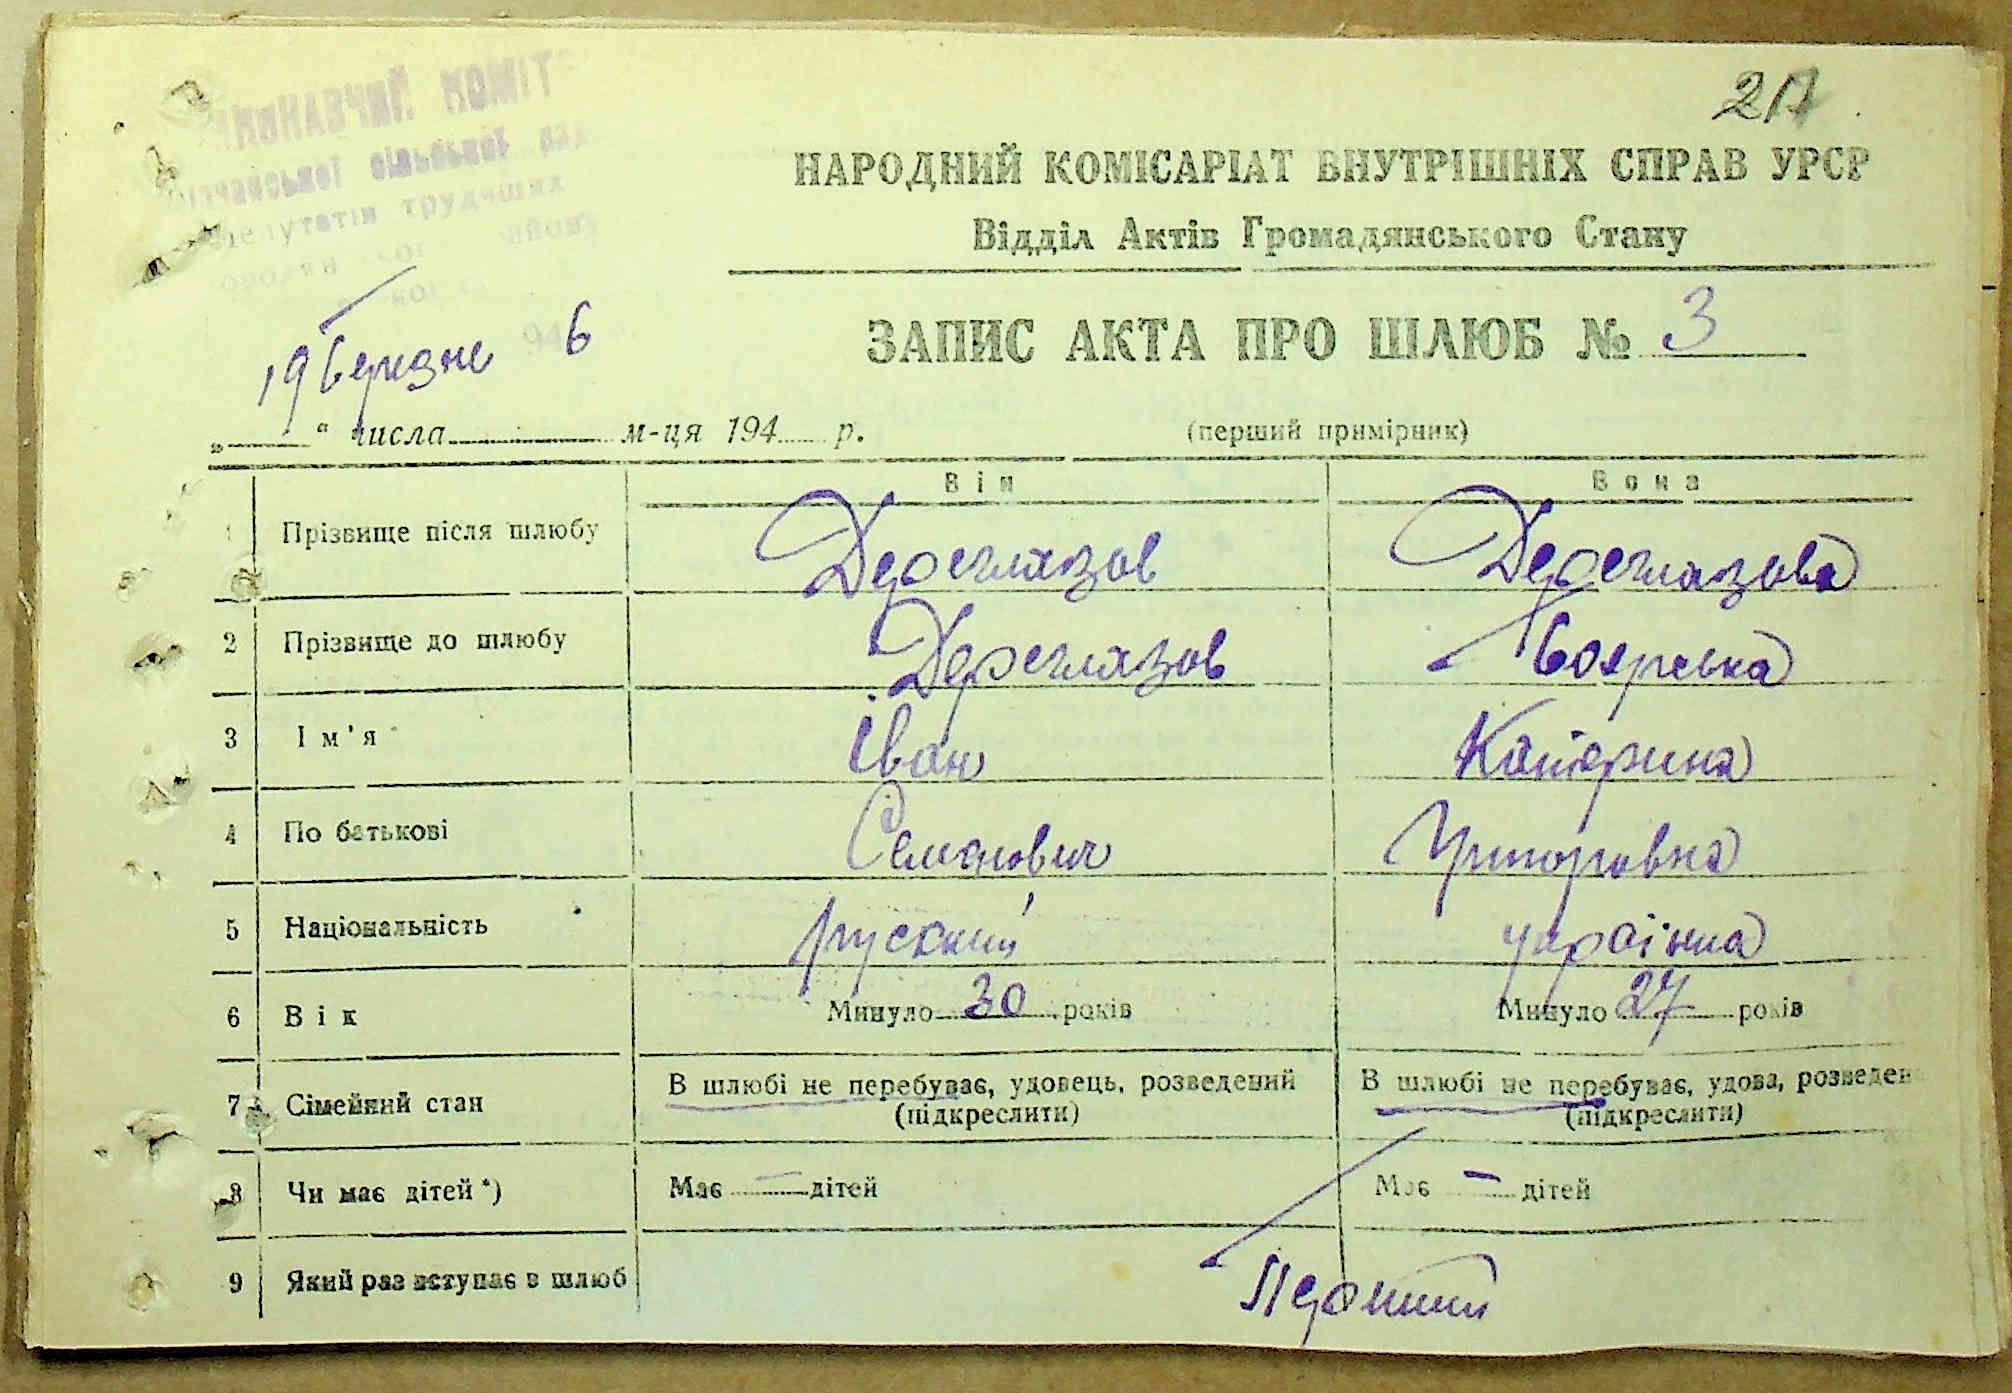 КОМІТ
сільської
депутатів трудящих
217
НАРОДНИЙ КОМІСАРІАТ ВНУТРІШНІХ СПРАВ УРСР
Відділ Актів Громадянського Стану
ЗАПИС АКТА ПРО ШЛЮБ № 3
19 березня 6
„ “ числа м-ця 194 р.
(перший примірник)
Він Вона
1 Прізвище після шлюбу Дереглазов Дереглазова
2 Прізвище до шлюбу Дереглазов Боярська
3 Ім'я Іван Катерина
4 По батькові Семенович Григоровна
5 Національність руский українка
6 Вік Минуло 30 років Минуло 27 років
7 Сімейний стан В шлюбі не перебуває, удовець, розведений В шлюбі не перебуває, удова, розведен
(підкреслити) (підкреслити)
8 Чи має дітей *) Має — дітей Має — дітей
9 Який раз вступає в шлюб Перший